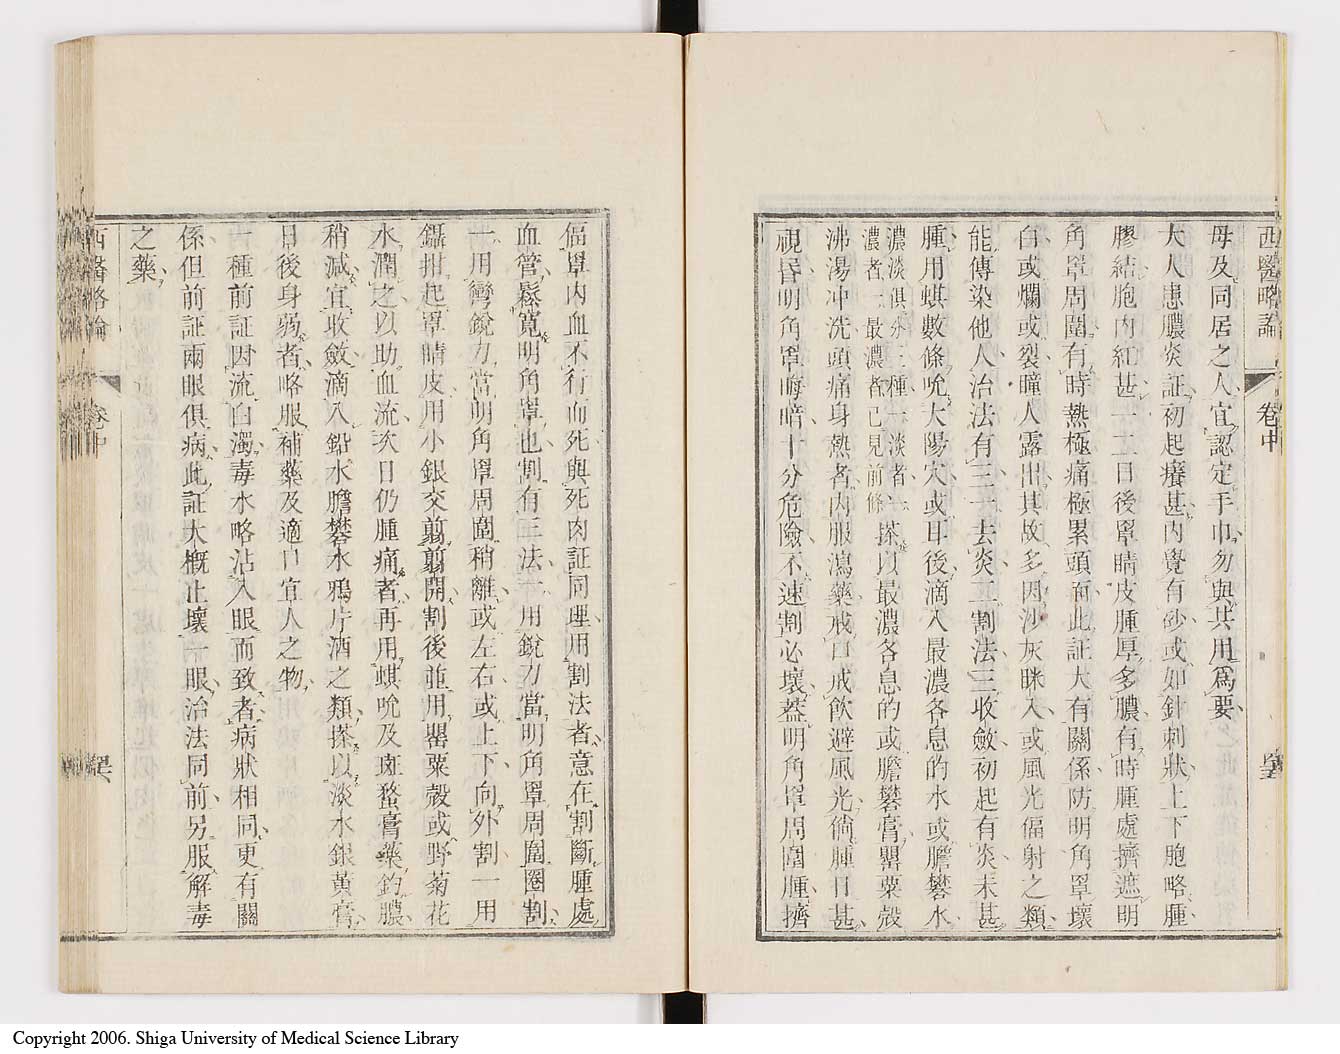 西醫略論 卷中
母及同居之人宜認定手巾勿與共用爲要
大人患膿炎証初起癢甚內覺有砂或如針刺狀上下胞略腫
膠結胞內紅甚一二日後罩睛皮腫厚多膿有時腫處擠遮明
角罩周圍有時熱極痛極累頭面此証大有關係防明角罩壞
白或爛或裂瞳人露出其故多因沙灰眯入或風光偪射之類
能傳染他人治法有三一去炎二割法三收斂初起有炎未甚
腫用蜞數條吮大陽穴或耳後滴入最濃各息的水或膽礬水
濃淡俱分三種一淡者一
濃者一最濃者已見前條
搽以最濃各息的或膽礬膏罌粟殼
沸湯冲洗頭痛身熱者內服瀉藥戒口戒飲避風光倘腫日甚
視昏明角罩晦暗十分危險不速割必壞蓋明角罩周圍腫擠
偪罩內血不行而死與死肉証同理用割法者意在割斷腫處
血管鬆寬明角罩也割有三法一用銳刀當明角罩周圍圈割
一用彎銳刀當明角罩周圍稍離或左右或上下向外割一用
鑷拑起罩睛皮用小銀交剪剪開割後並用罌粟殼或野菊花
水潤之以助血流次日仍腫痛者再用蜞吮及斑蝥膏藥釣膿
稍減宜收斂滴入鉛水膽礬水鴉片酒之類搽以淡水銀黃膏
日後身弱者略服補藥及適口宜人之物
一種前証因流白濁毒水略沾入眼而致者病狀相同更有關
係但前証兩眼俱病此証大槪止壞一眼治法同前另服解毒
之藥
西醫略論 卷中
Copyright 2006. Shiga University of Medical Science Library